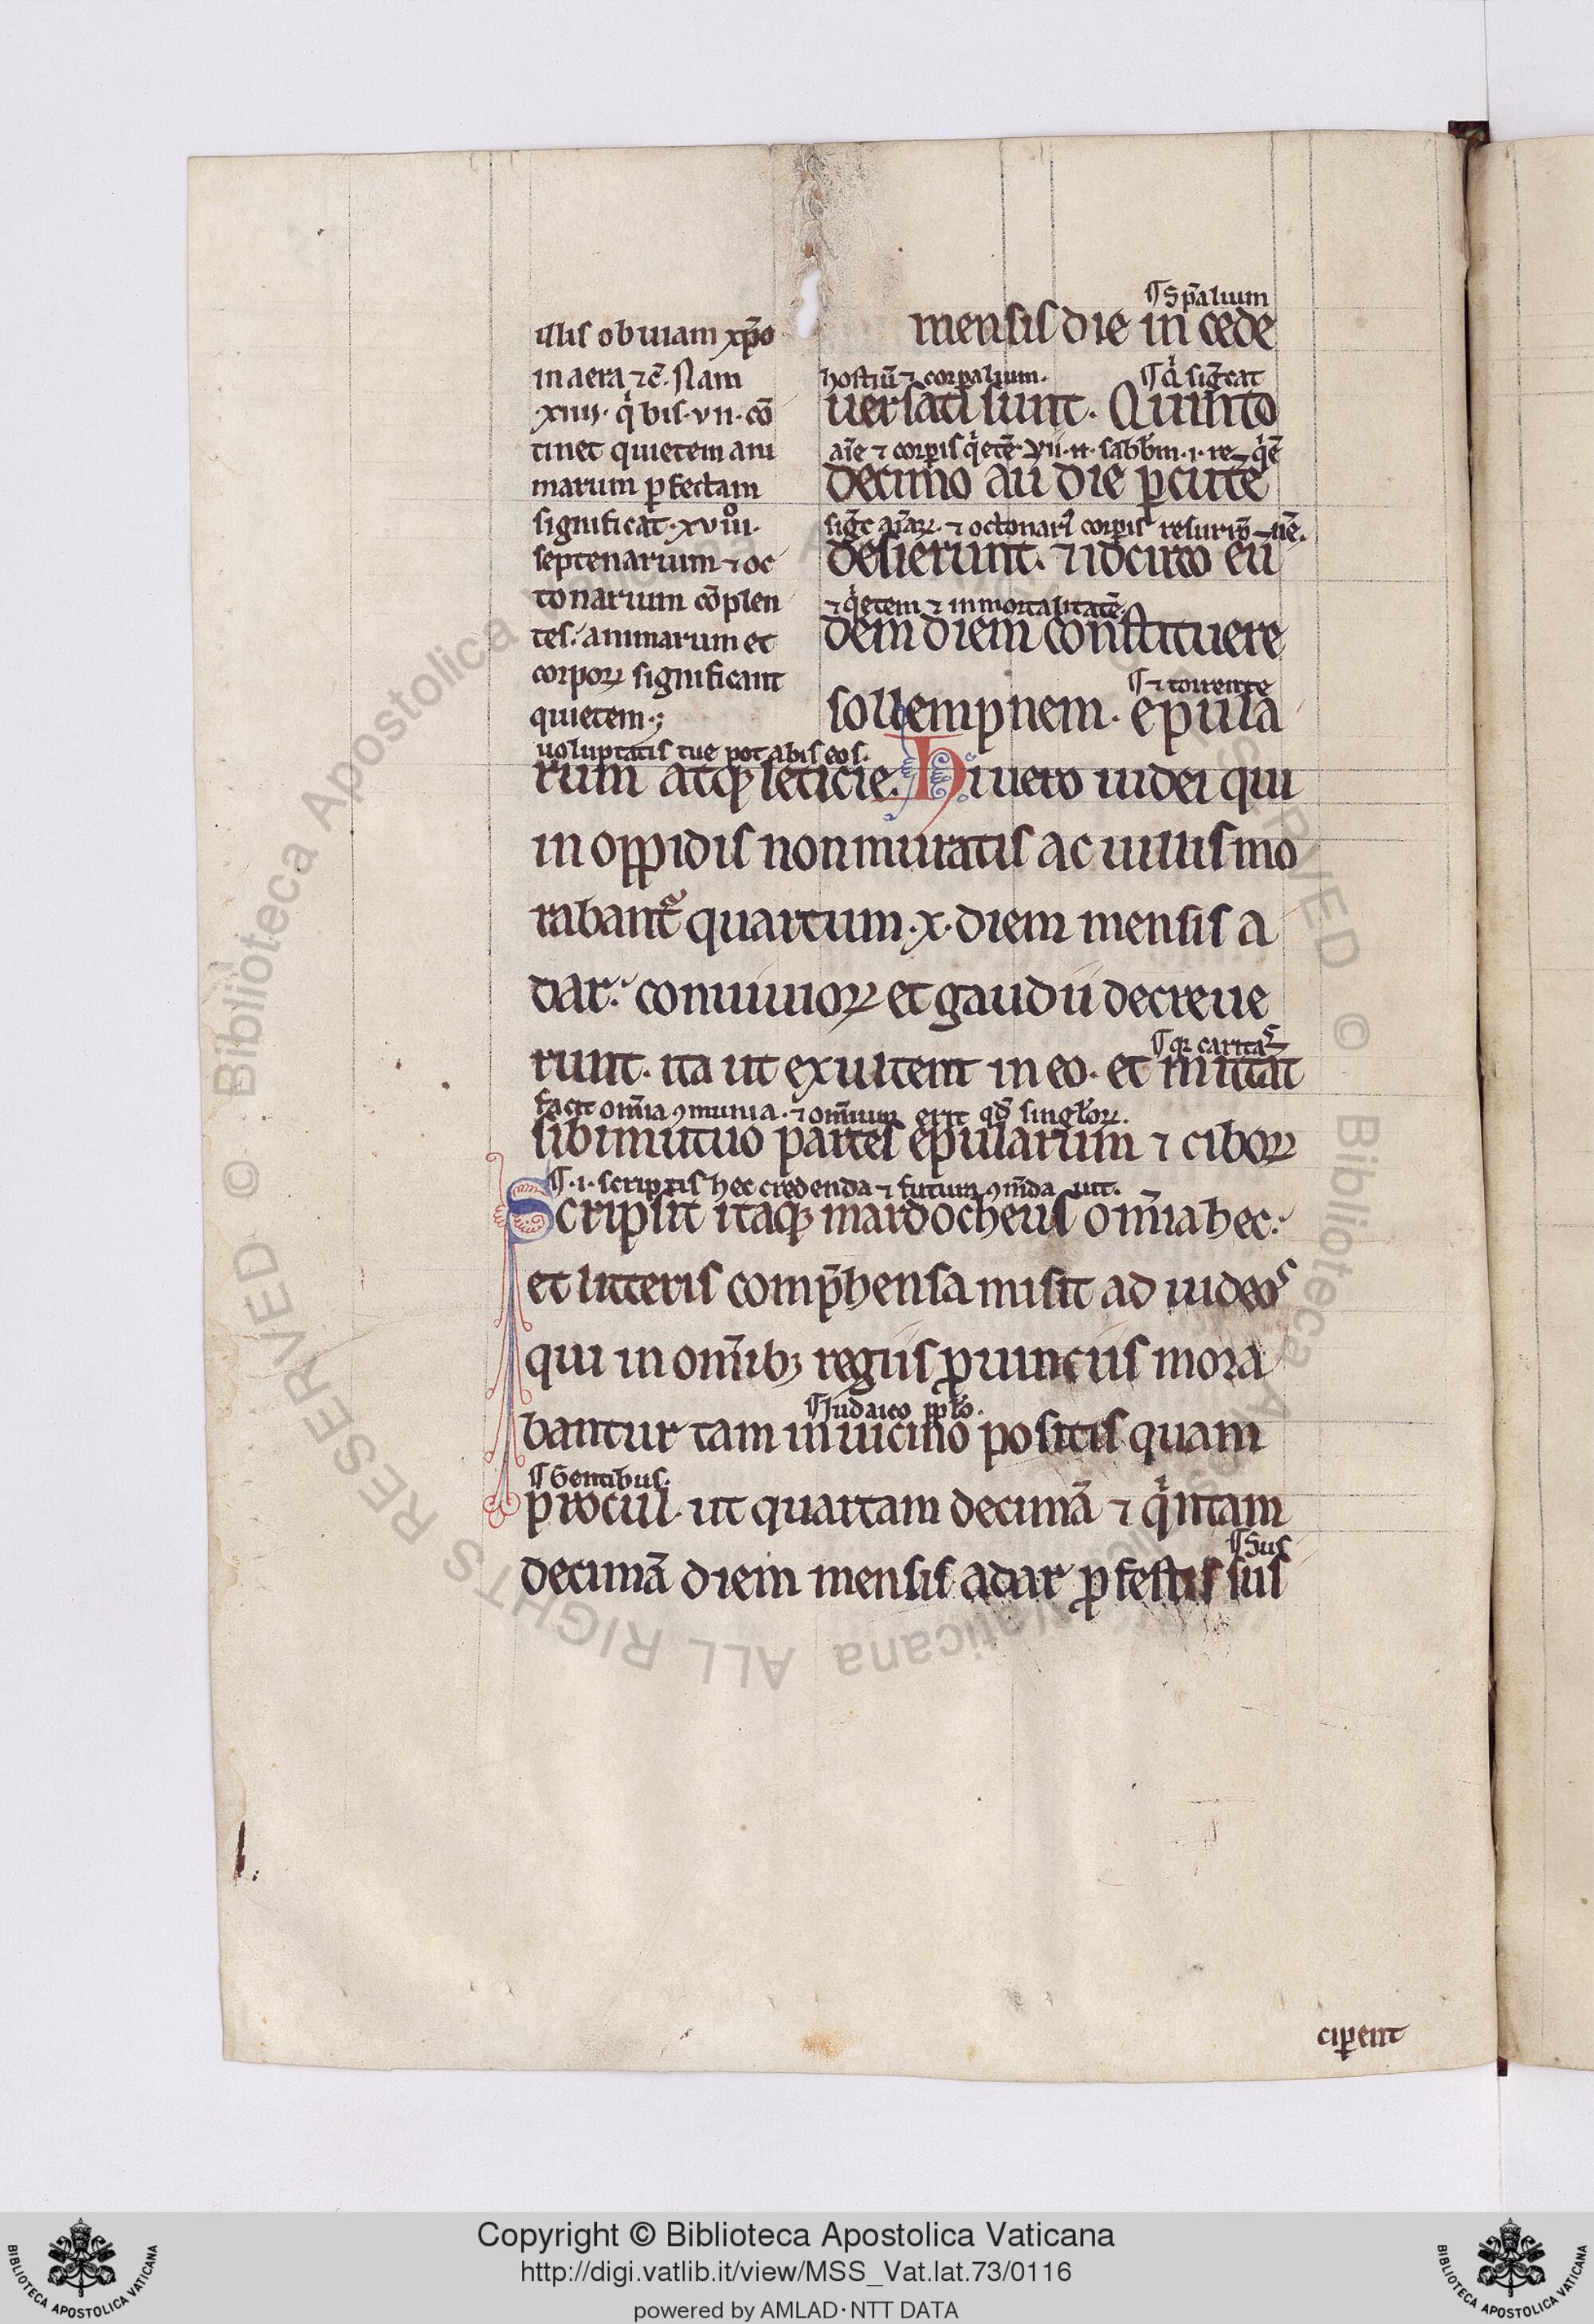 illis obuiam xp̄o
in aera ⁊c̄. Nam
.xiiii. qͥ bis .vii. cō
tinet quietem ani
marum ꝑfectam
significat .xviii.
septenarium ⁊ oc
tonarium cōplen
tes: animarum et
corpoꝝ significant
quietem.;
¶ Spālium
mensis die in cede
hostiū ⁊ corꝑalium. ¶ Qͥ sigͣcat
uersati sunt. Quinto
aīe ⁊ corꝑis qͥetē. vii. n. sabb̄m .i. re qͥē
decimo aū die ꝑcutē
desierunt. ⁊ idcirco eū
⁊ qͥetem ⁊ inmortalitatē.
dem diem constituere
¶ ⁊ torrente
sollempnem. epula
uoluptatis tue potabis eos.
rum atqꝫ leticie. Hi uero iudei qui
in oppidis non muratis ac uillis mo
rabant᷑ quartum .x. diem mensis a
dar: conuiuioꝝ et gaudii decreue
runt. ita ut exultent in eo. et mittāt
facit om̄ia ꝯmunia. ⁊ omnium erit qd̄ singl̓oꝝ.
sibi mutuo partes epularum ⁊ ciboꝝ
¶ .i. scripsis hec credenda ⁊ futurꝭ ꝯm̄da uit.
Scripsit itaqꝫ mardocheus om̄ia hec:
et litteris comp̄hensa misit ad iudeos
qui in om̄ibꝫ regiis ꝓuinciis mora
¶ Iudaico pp̄lo.
bantur tam in uicino positis quam
¶ Gentibus.
procul. ut quartam decimā ⁊ qͥntam
¶ Suis
decimā diem mensis adar ꝓ festis suis
ciꝑent
Copyright © Biblioteca Apostolica Vaticana
http://digi.vatlib.it/view/MSS_Vat.lat.73/0116
powered by AMLAD·NTT DATA
BIBLIOTECA APOSTOLICA VATICANA
BIBLIOTECA APOSTOLICA VATICANA